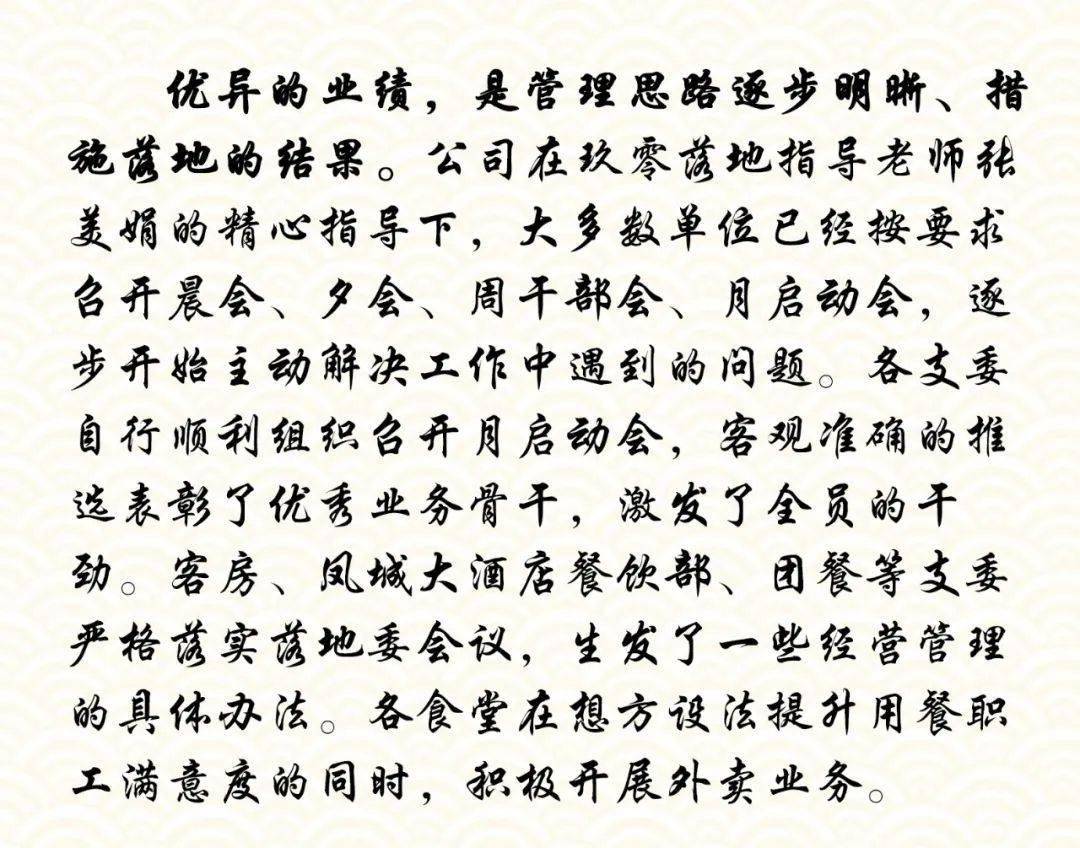 优异的业绩，是管理思路逐步明晰、措
施落地的结果。公司在玖零落地指导老师张
美娟的精心指导下，大多数单位已经按要求
召开晨会、夕会、周干部会、月启动会，逐
步开始主动解决工作中遇到的问题。各支委
自行顺利组织召开月启动会，客观准确的推
选表彰了优秀业务骨干，激发了全员的干
劲。客房、凤城大酒店餐饮部、团餐等支委
严格落实落地委会议，生发了一些经营管理
的具体办法。各食堂在想方设法提升用餐职
工满意度的同时，积极开展外卖业务。